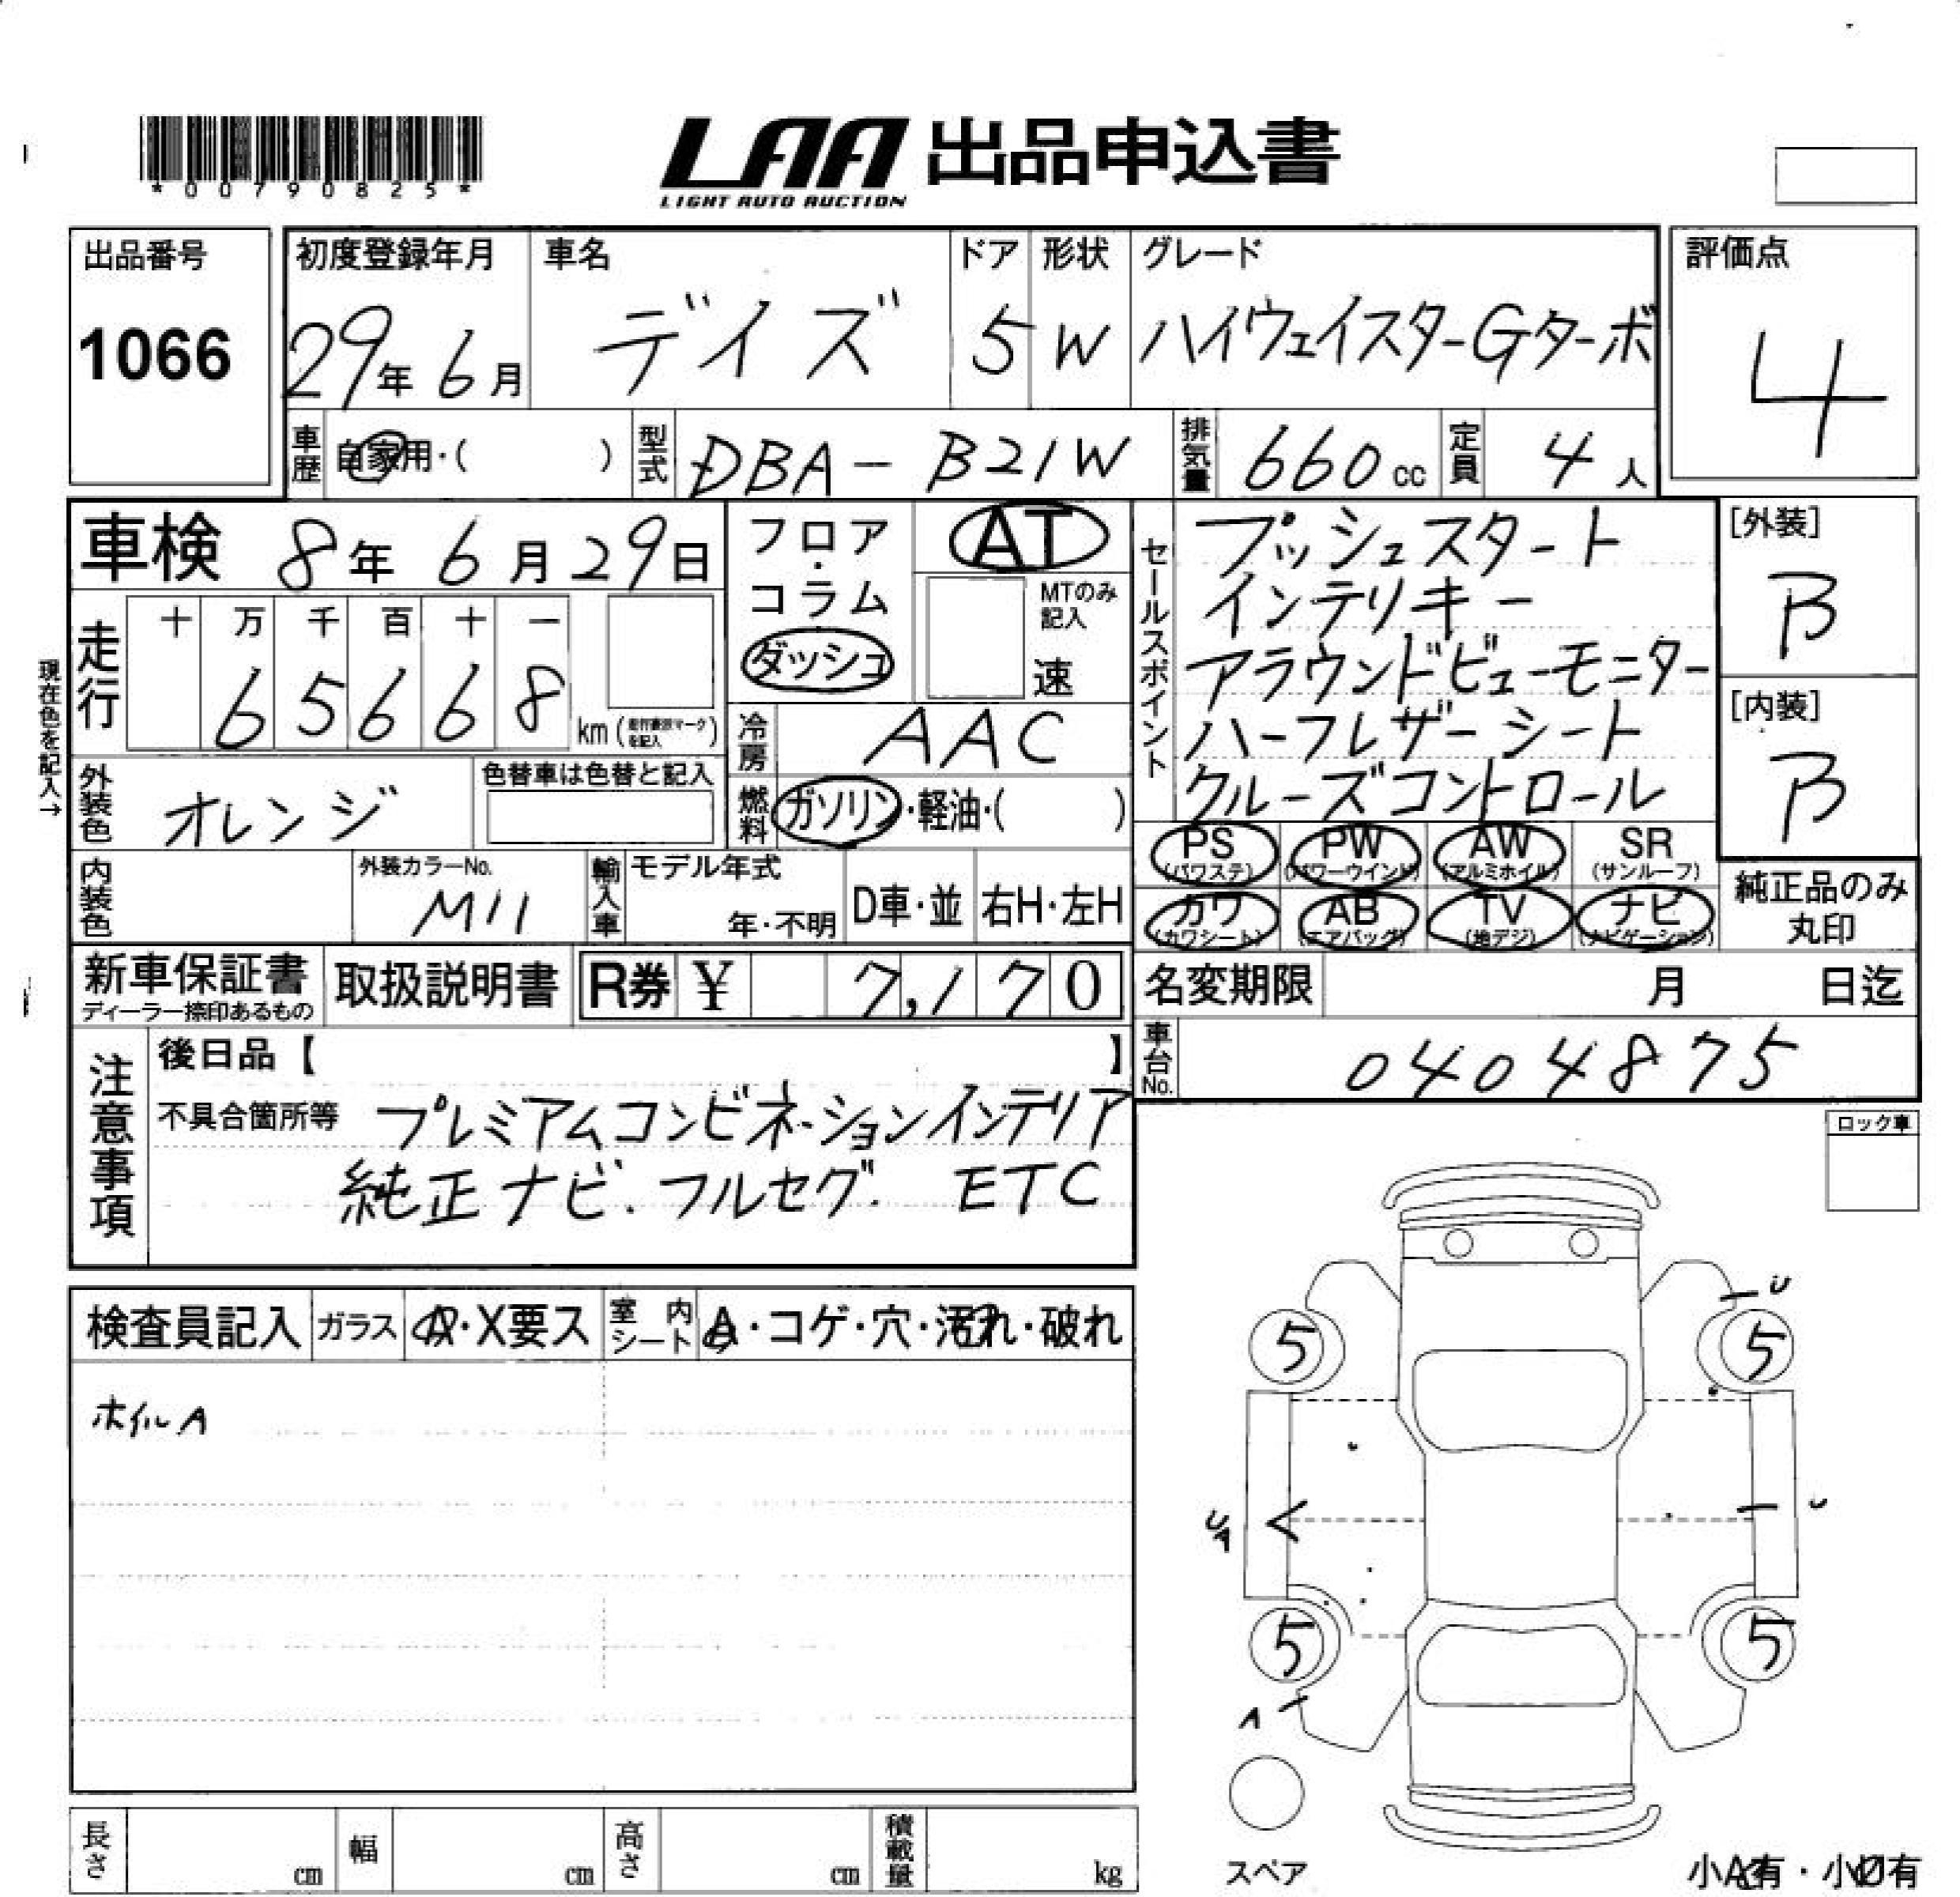 *00790825*
LAA 出品申込書
LIGHT AUTO AUCTION
出品番号 1066
初度登録年月 29年 6月
車名 デイズ
ドア 5
形状 W
グレード ハイウェイスターGターボ
評価点 4
車歴 自家用・( )
型式 DBA-B21W
排気量 660cc
定員 4人
車検 8年 6月29日
フロア・コラム
ダッシュ
AT
MTのみ記入
速
セールスポイント
プッシュスタート
インテリキー
アラウンドビューモニター
ハーフレザーシート
クルーズコントロール
[外装] B
[内装] B
現在色を記入→
走行 十 万 千 百 十 一
6 5 6 6 8 km
冷房 AAC
外装色 オレンジ
色替車は色替と記入
燃料 ガソリン・軽油・( )
PS (パワステ) PW (パワーウインド) AW (アルミホイル) SR (サンルーフ)
カワ (カワシート) AB (エアバッグ) TV (地デジ) ナビ (ナビゲーション)
純正品のみ丸印
内装色
外装カラーNo. M11
輸入車 モデル年式 年・不明 D車・並 右H・左H
新車保証書
ディーラー捺印あるもの
取扱説明書
R券 ¥ 7,170
名変期限 月 日迄
車台No. 0404875
注意事項
後日品【 】
不具合箇所等 プレミアムコンビネーションインテリア
純正ナビ.フルセグ. ETC
ロック車
検査員記入 ガラス A・X要ス 室内シート A・コゲ・穴・汚れ・破れ
ホイルA
U
5 5
U
5 5
A
スペア
長さ cm 幅 cm 高さ cm 積載量 kg
小A有・小U有